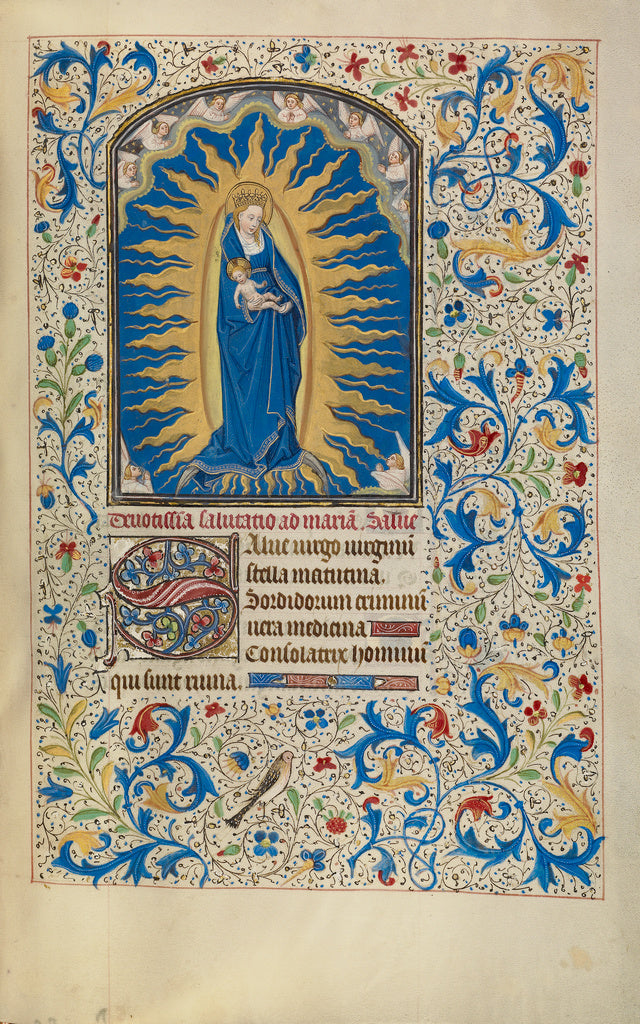 Deuotissīa salutatio ad mariā. Salue
Salue uirgo uirginū
stella matutina.
Sordidorum criminū
uera medicina
Consolatrix hominū
qui sunt ruina.